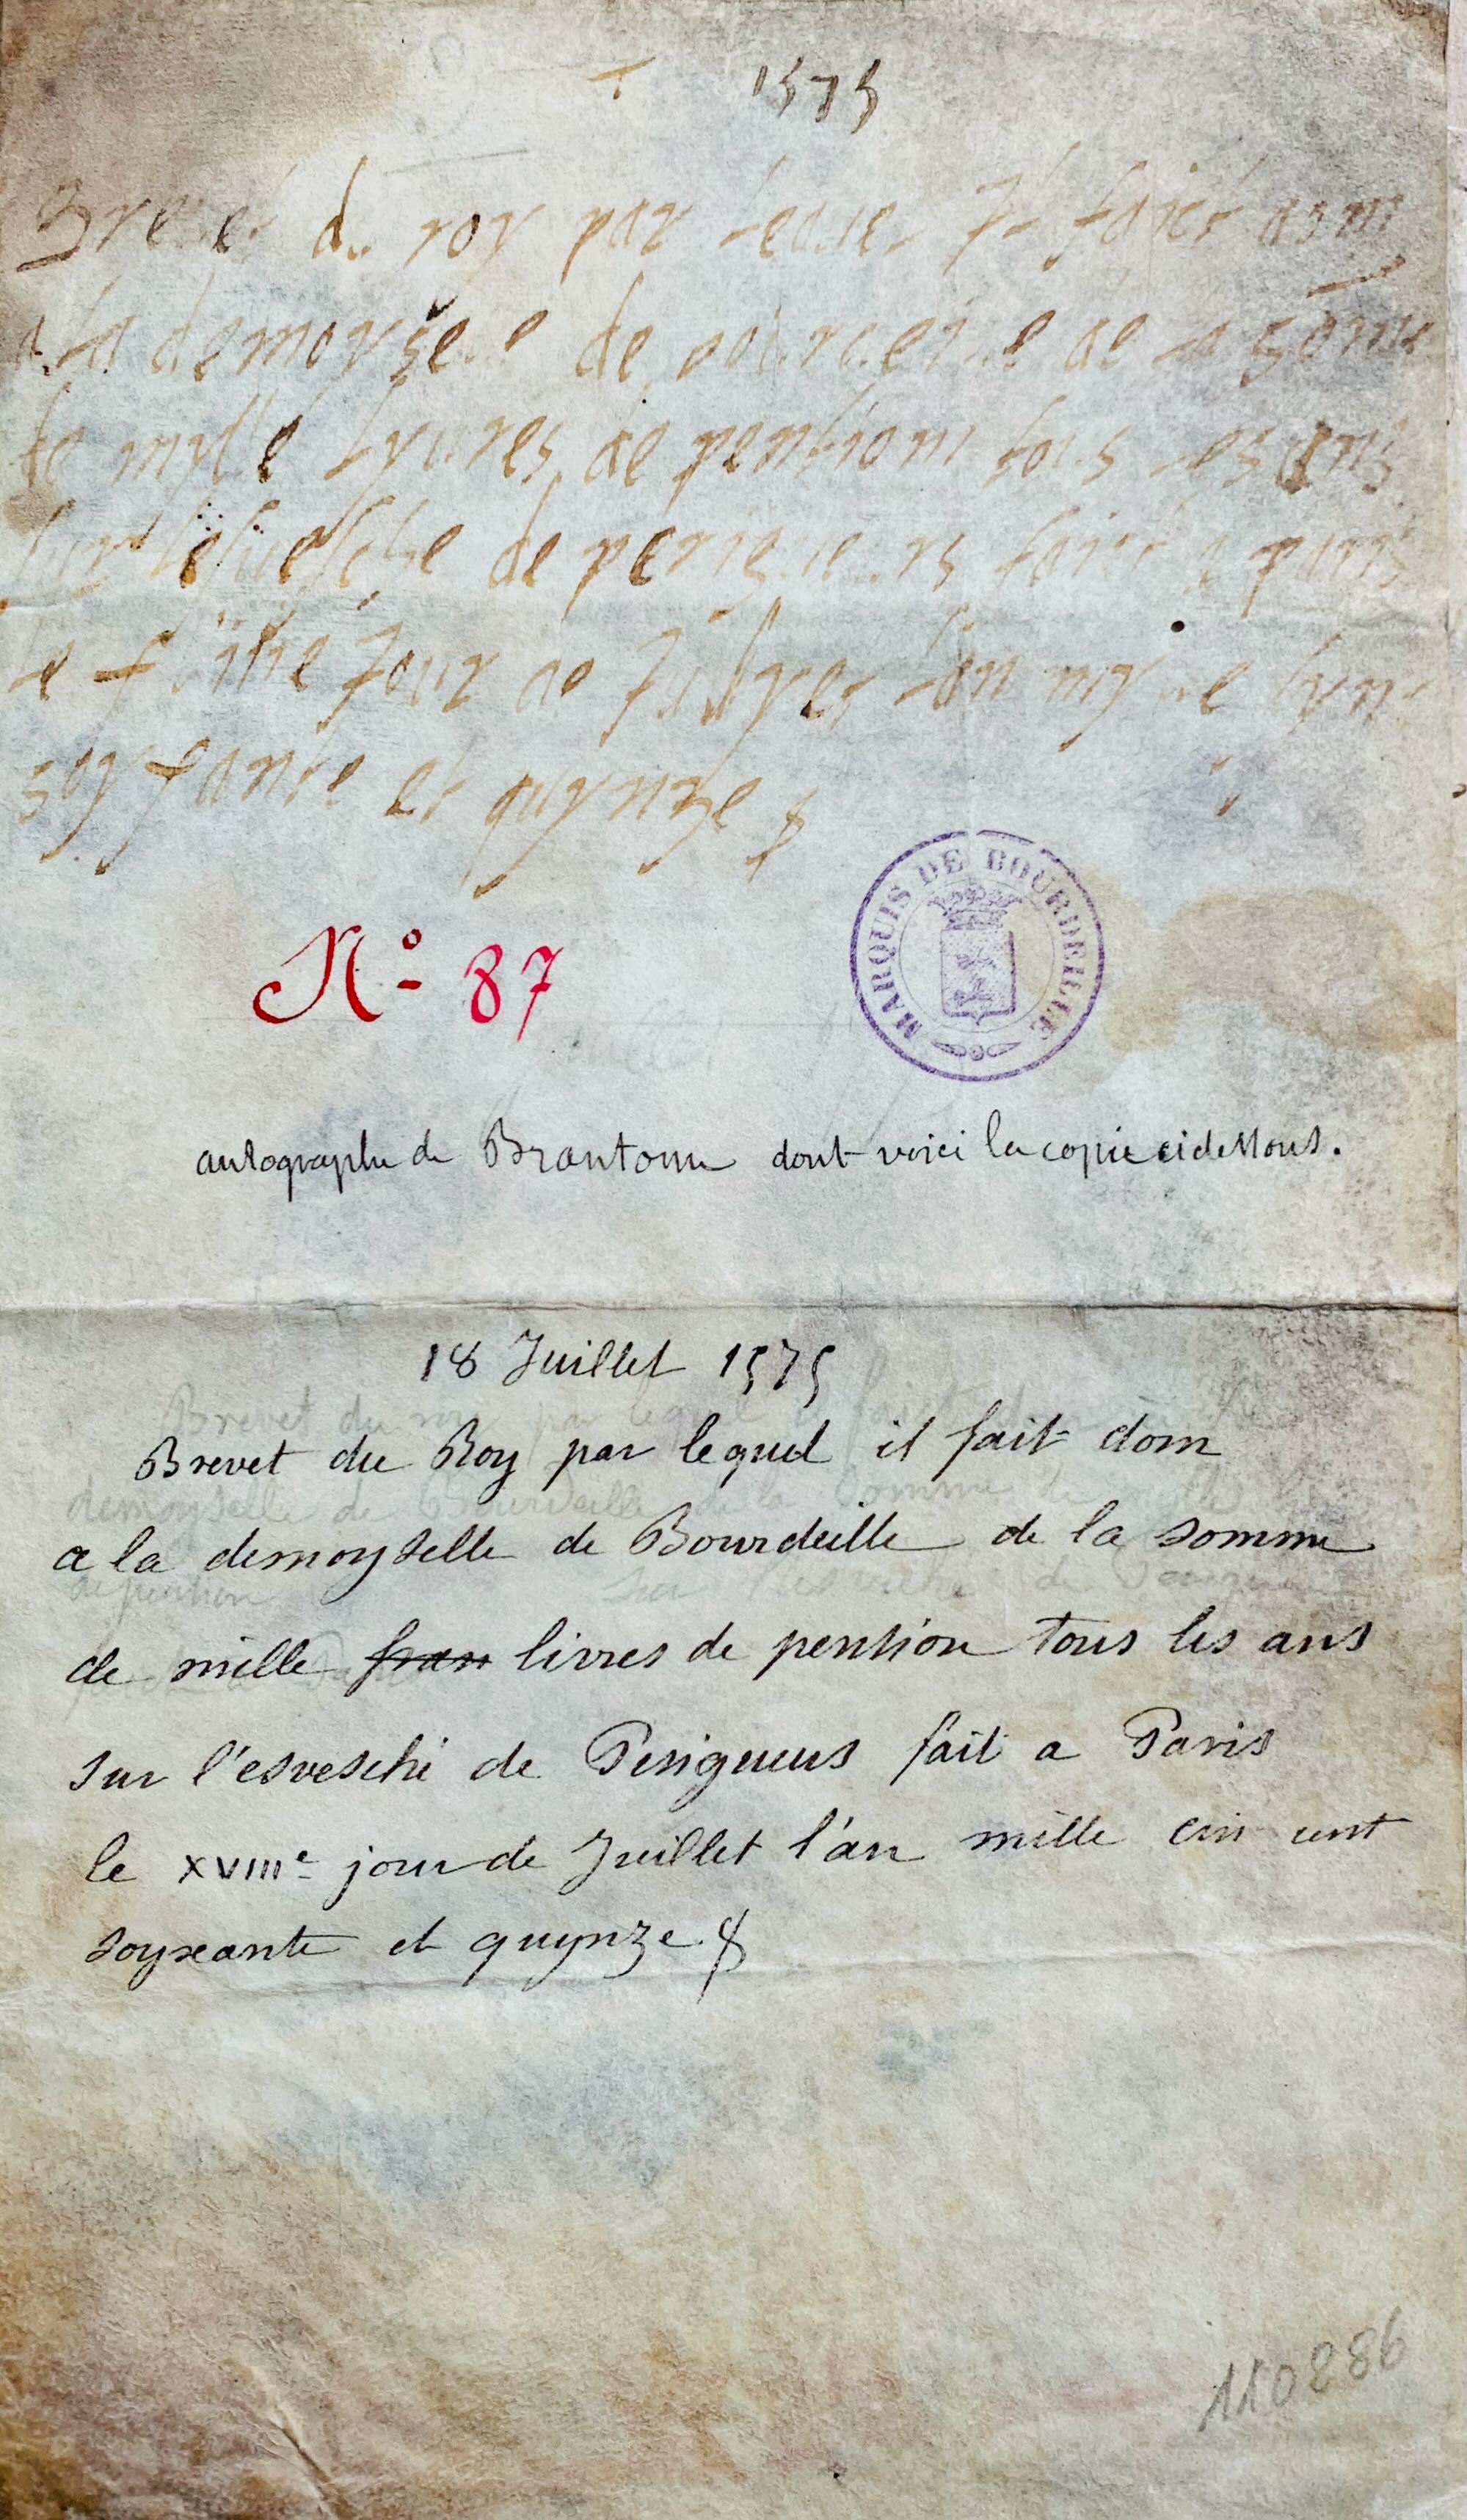 1575
Brevet du roy par lequel il faict dom
a la demoyselle de bourdeille de la some
de mylle lyvres de pention tous les ans
sur l'esvesche de perigueurs faict a paris
le jour de l'an mylle
soyssante et quynze
N° 87
MARQUIS DE BOURDEILLE
autographe de Brantome dont voici la copie ci dessous.
18 Juillet 1575
Brevet du Roy par lequel il fait dom
a la demoyselle de Bourdeille de la somme
de mille fran livres de pention tous les ans
sur l'esvesché de Perigueus fait a Paris
le XVIIIe jour de Juillet l'an mille cin cent
soyxante et quynze
110886